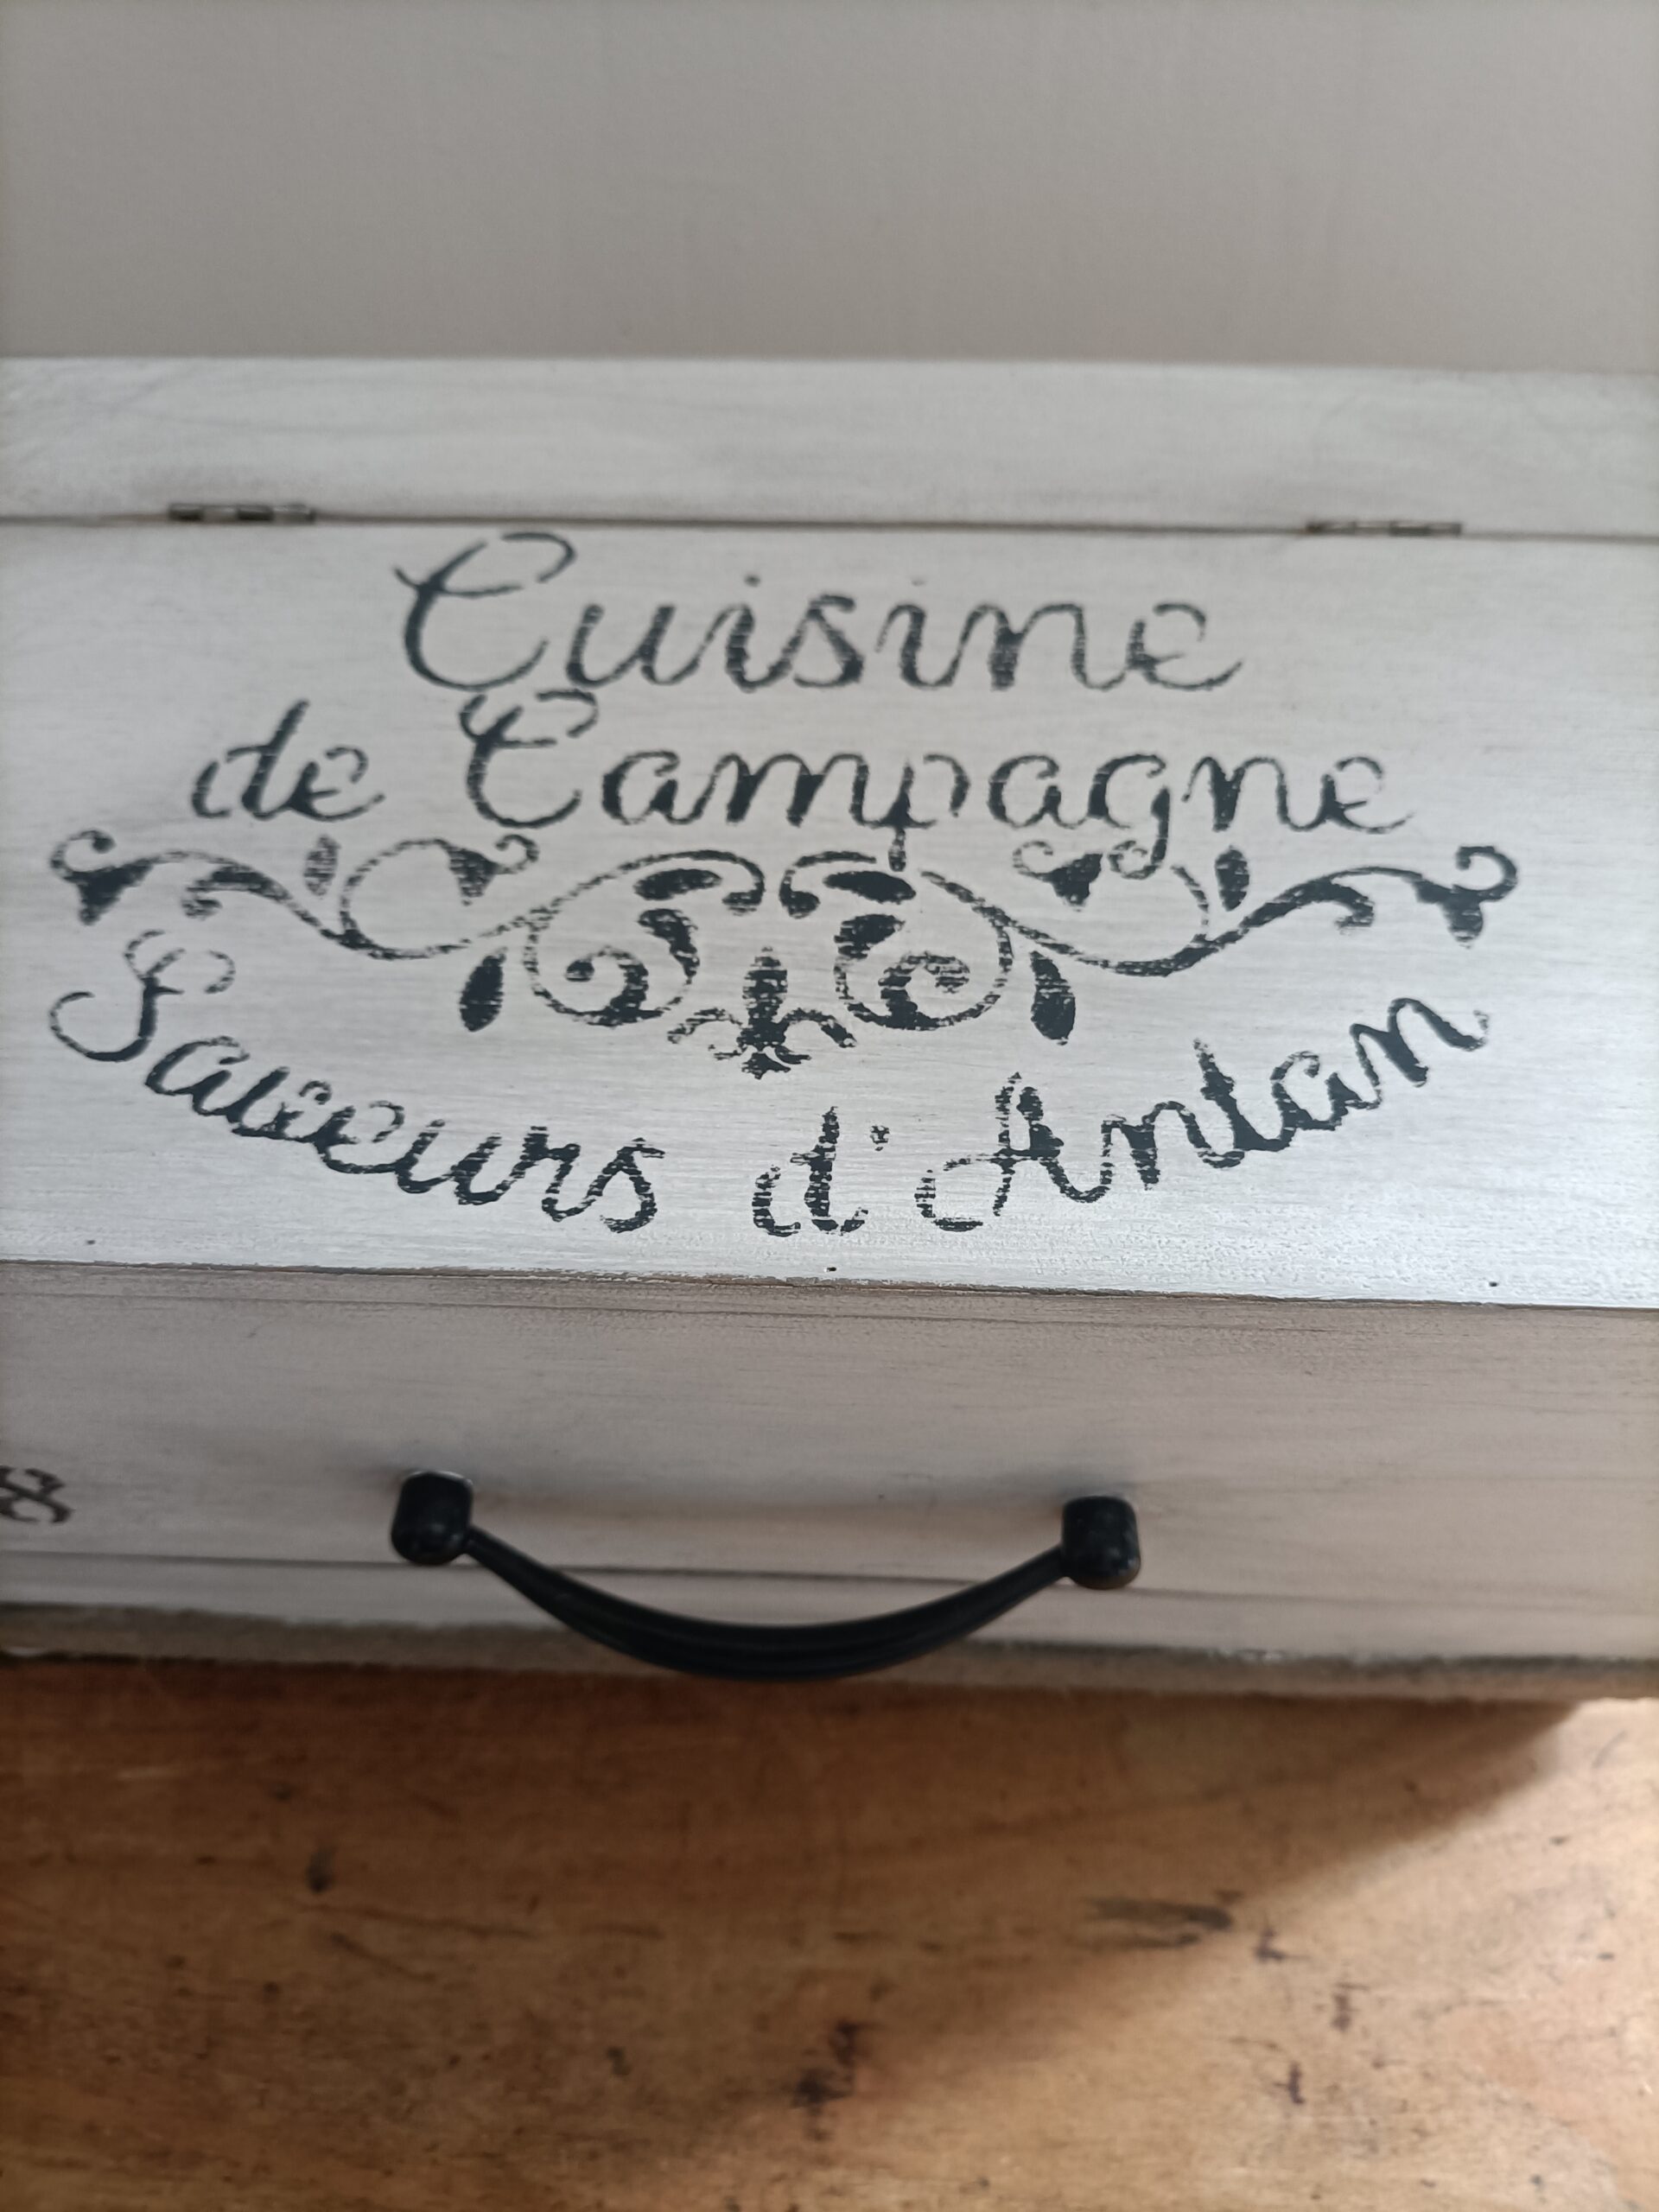 Cuisine
de Campagne
Saveurs d'Antan